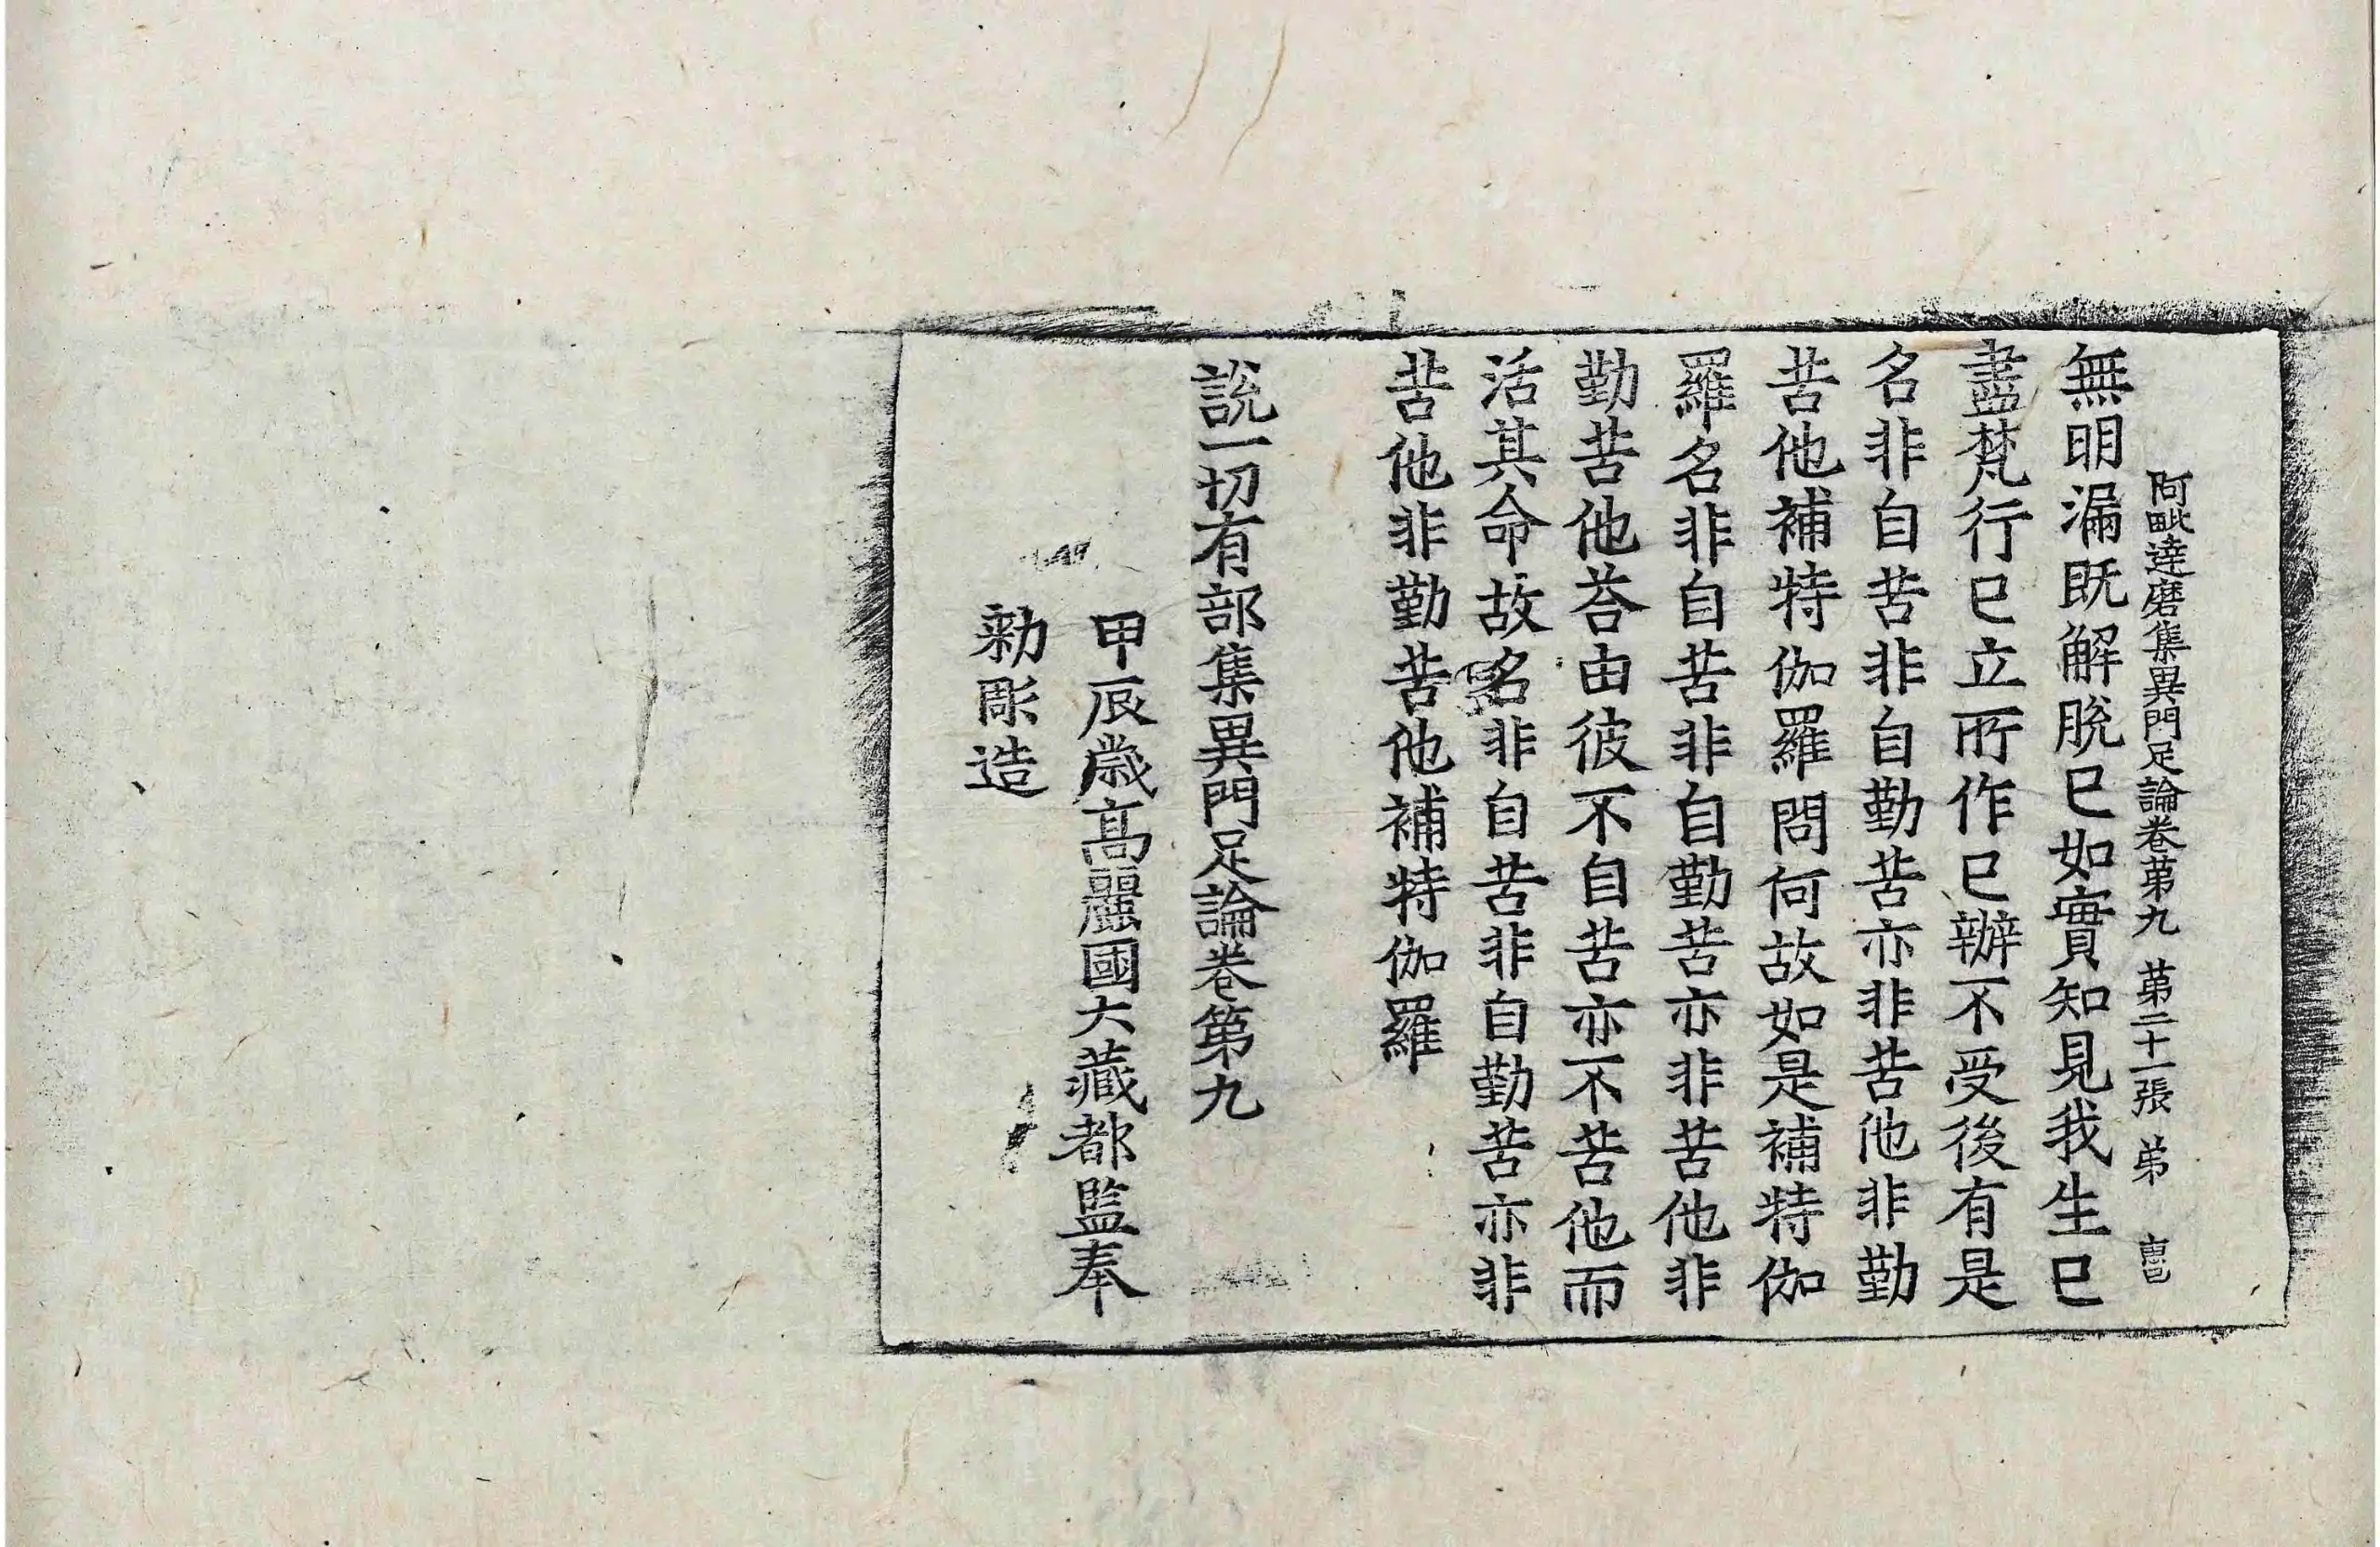 阿毗達磨集異門足論卷苐九 苐二十一張 弟
無明漏既解脫已如實知見我生已
盡梵行已立所作已辦不受後有是
名非自苦非自勤苦亦非苦他非勤
苦他補特伽羅問何故如是補特伽
羅名非自苦非自勤苦亦非苦他非
勤苦他荅由彼不自苦亦不苦他而
活其命故名非自苦非自勤苦亦非
苦他非勤苦他補特伽羅
說一切有部集異門足論卷第九
甲辰歲高麗國大藏都監奉
勑彫造